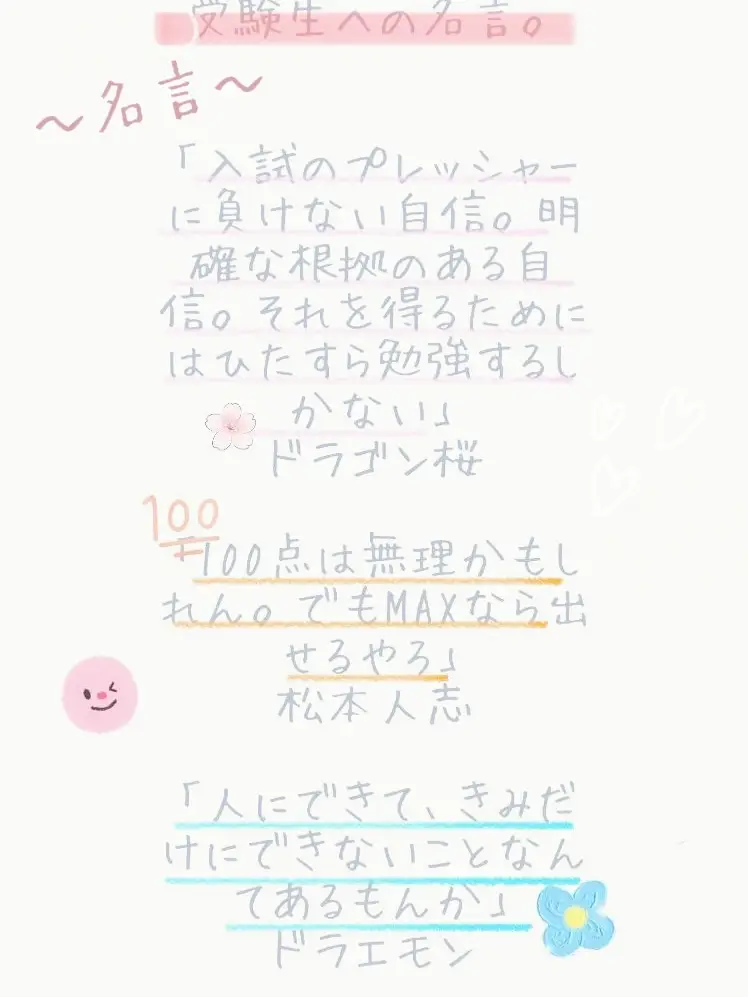 受験生への名言。
〜名言〜
「入試のプレッシャー
に負けない自信。明
確な根拠のある自
信。それを得るために
はひたすら勉強するし
かない」
ドラゴン桜
100
「100点は無理かもし
れん。でもMAXなら出
せるやろ」
松本人志
「人にできて、きみだ
けにできないことなん
てあるもんか」
ドラエモン